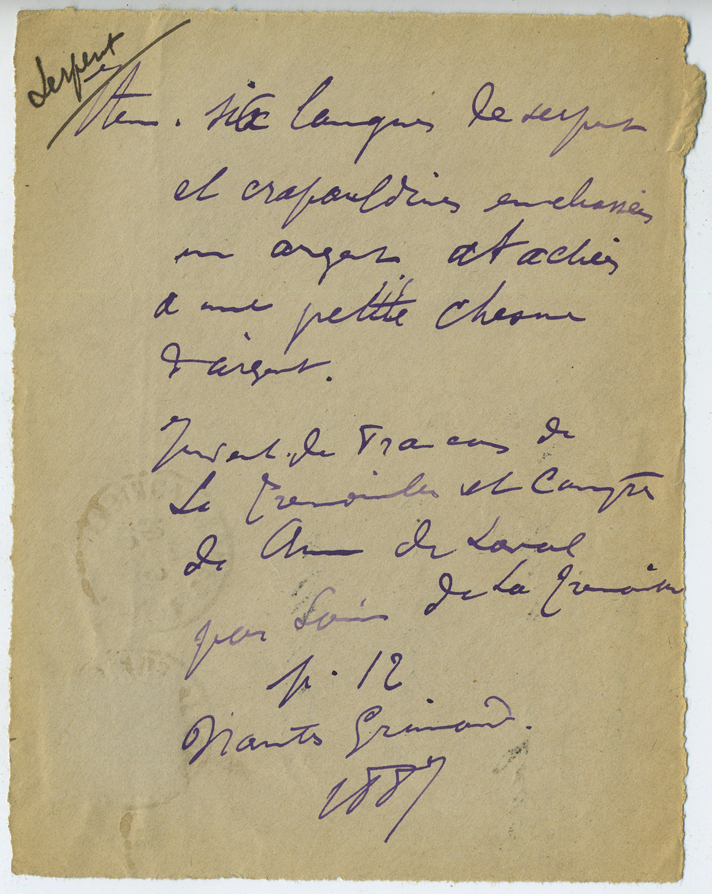 Serpent
Item. six langues de serpent
et crapauldines enchassées
en argent attachées
a une petitte chesne
d'argent.
Invent. de Francois de
La Tremoille et Comptes
de Anne de Laval
par Louis de La Tremoille
p. 12
Nantes Grimaud.
1887